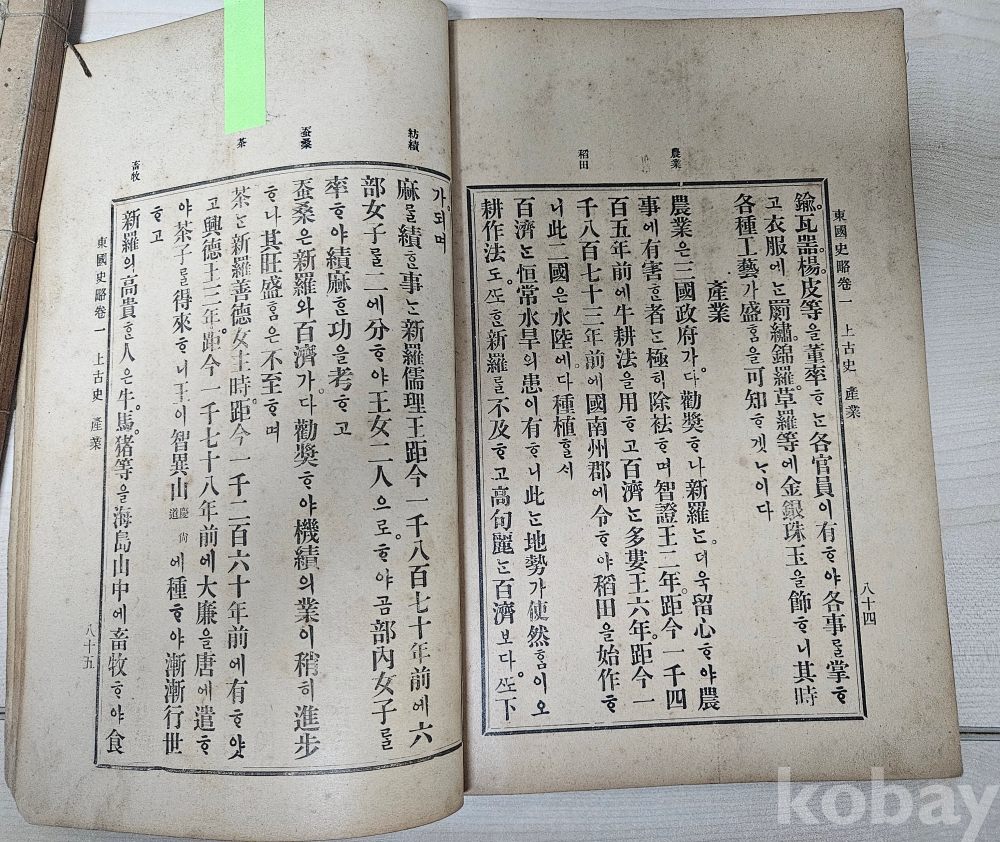 東國史略卷一 上古史 產業
八十四
鍮。瓦器。楊。皮等을董率ᄒᆞᄂᆞᆫ各官員이有ᄒᆞ야各事ᄅᆞᆯ掌ᄒᆞ
고衣服에ᄂᆞᆫ罽繡。錦羅。草羅等에金銀珠玉을飾ᄒᆞ니其時
各種工藝가盛ᄒᆞᆷ을可知ᄒᆞ겟ᄂᆞ이다
產業
農業
農業은三國政府가。다勸奬ᄒᆞ나新羅ᄂᆞᆫ。더욱留心ᄒᆞ야農
事에有害ᄒᆞᆫ者ᄂᆞᆫ極히除祛ᄒᆞ며智證王二年。距今一千四
百五年前에牛耕法을用ᄒᆞ고百濟ᄂᆞᆫ多婁王六年。距今一
稻田
千八百七十三年前에國南州郡에令ᄒᆞ야稻田을始作ᄒᆞ
니此二國은水陸에다種植ᄒᆞᆯ셔
百濟ᄂᆞᆫ恒常水旱의患이有ᄒᆞ니此ᄂᆞᆫ地勢가使然ᄒᆞᆷ이오
耕作法도。ᄯᅩᄒᆞᆫ新羅ᄅᆞᆯ不及ᄒᆞ고高句麗ᄂᆞᆫ百濟보다。ᄯᅩ下
가。되며
紡績
麻ᄅᆞᆯ績ᄒᆞᆫ事ᄂᆞᆫ新羅儒理王。距今一千八百七十年前에六
部女子ᄅᆞᆯ二에分ᄒᆞ야王女二人으로。ᄒᆞ야곰部內女子ᄅᆞᆯ
率ᄒᆞ야績麻ᄒᆞᆫ功을考ᄒᆞ고
蚕桑
蚕桑은新羅와百濟가。다勸奬ᄒᆞ야機績의業이稍히進步
ᄒᆞ나其旺盛ᄒᆞᆷ은不至ᄒᆞ며
茶
茶ᄂᆞᆫ新羅善德女主時。距今一千二百六十年前에有ᄒᆞ얏
고興德王三年。距今一千七十八年前에大廉을唐에遣ᄒᆞ
야茶子ᄅᆞᆯ得來ᄒᆞ니王이智異山慶尙道에種ᄒᆞ야漸漸行世
ᄒᆞ고
畜牧
新羅의高貴ᄒᆞᆫ人은牛。馬。猪等을海島山中에畜牧ᄒᆞ야食
東國史略卷一 上古史 產業
八十五
kobay